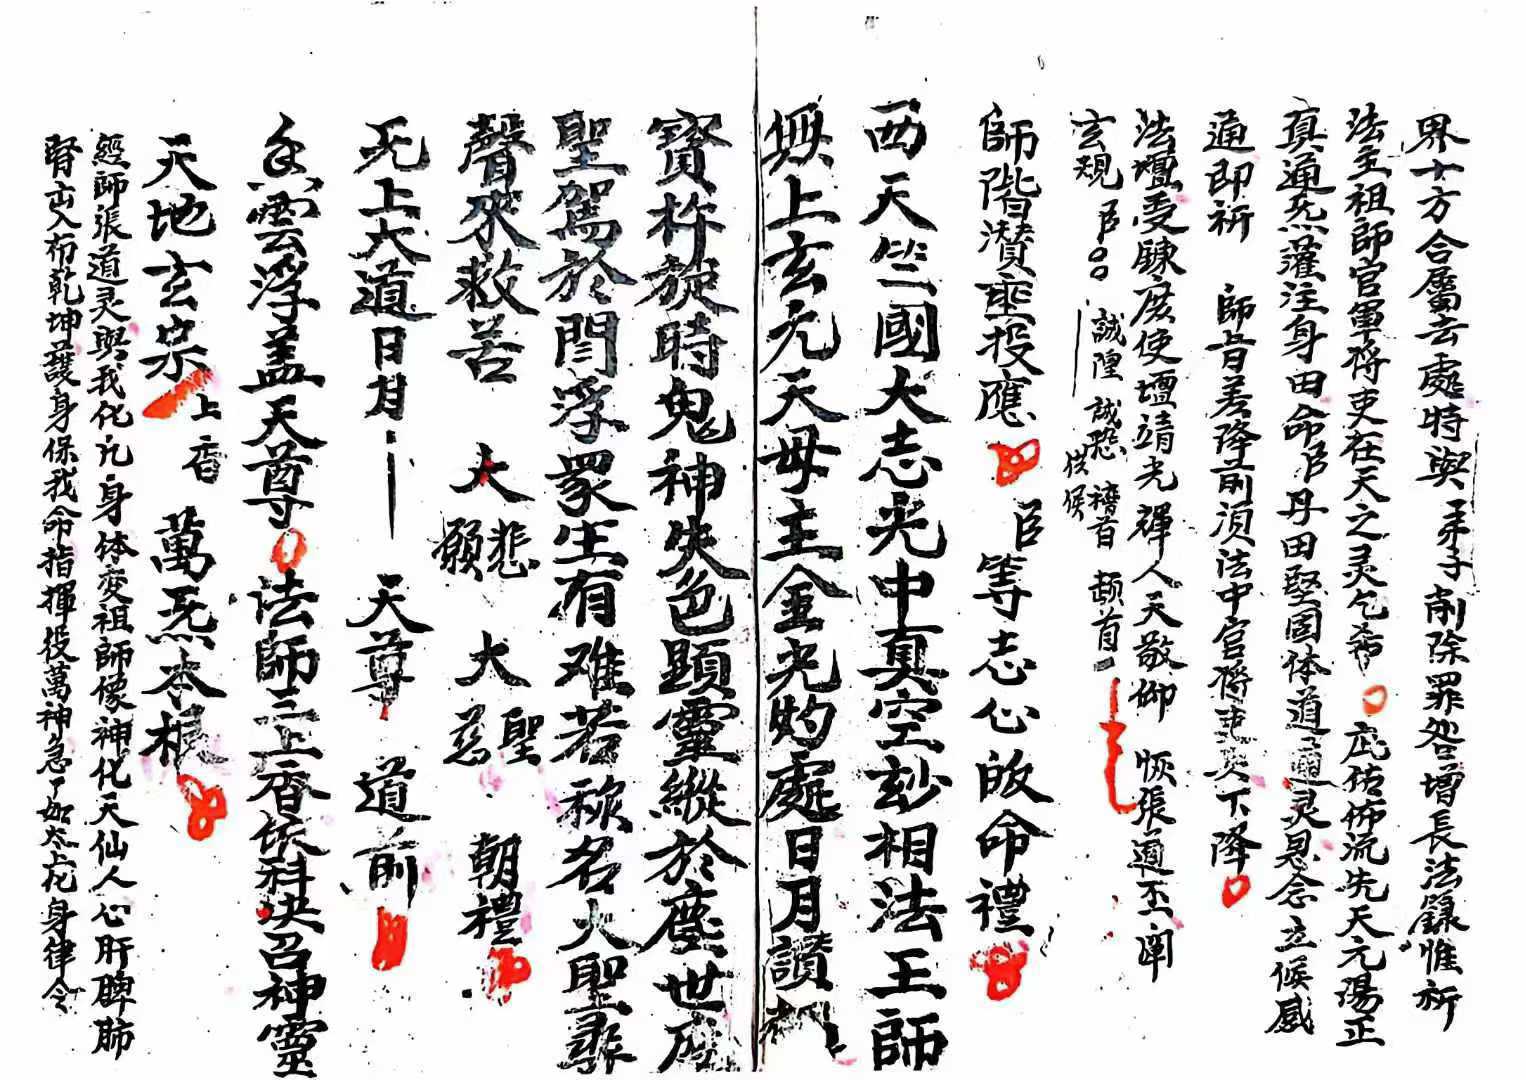 界十方合屬去處時與弟子削除罪咎增長法籙惟祈
法主祖師官軍將吏在天之灵乞希庇佑佈流先天元陽正
真通炁灌注身田命臣丹田堅固体道通灵恩念立候感
通即祈 師旨若降前湏法中官將吏兵下降
法壇受鍊庶使壇靖光輝人天敬仰恢張道丕闡
玄規臣 誠隍誠恐稽首頓首
師階讃聖投應 臣等志心皈命禮
西天竺國大志光中真空玅相法王師
無上玄元天母主金光灼處日月讃
寶杵旋時鬼神失色顕靈縱於塵世
聖駕於閆浮眾生有难若称名大聖尋
聲來救苦 大悲願 大聖慈 朝禮
旡上大道日月 天尊 道前
香雲浮盖天尊 法師三上香依科召神靈
天地玄宗 上香 萬炁本根
經師張道灵與我化訖身体变祖師像神化天仙人心肝脾肺
腎出入布乾坤護身保我命指揮役萬神急如太上化身律令